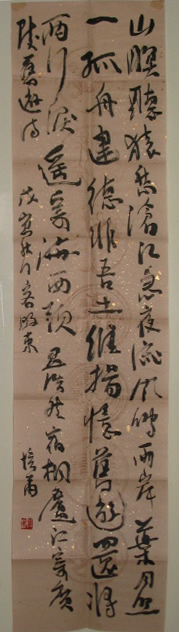 山暝聽猿愁滄江急夜流風鳴兩岸葉月照
一孤舟建德非吾土維揚憶舊遊還將
兩行淚遙寄海西頭孟浩然宿桐廬江寄廣
陵舊遊詩 戊寅秋